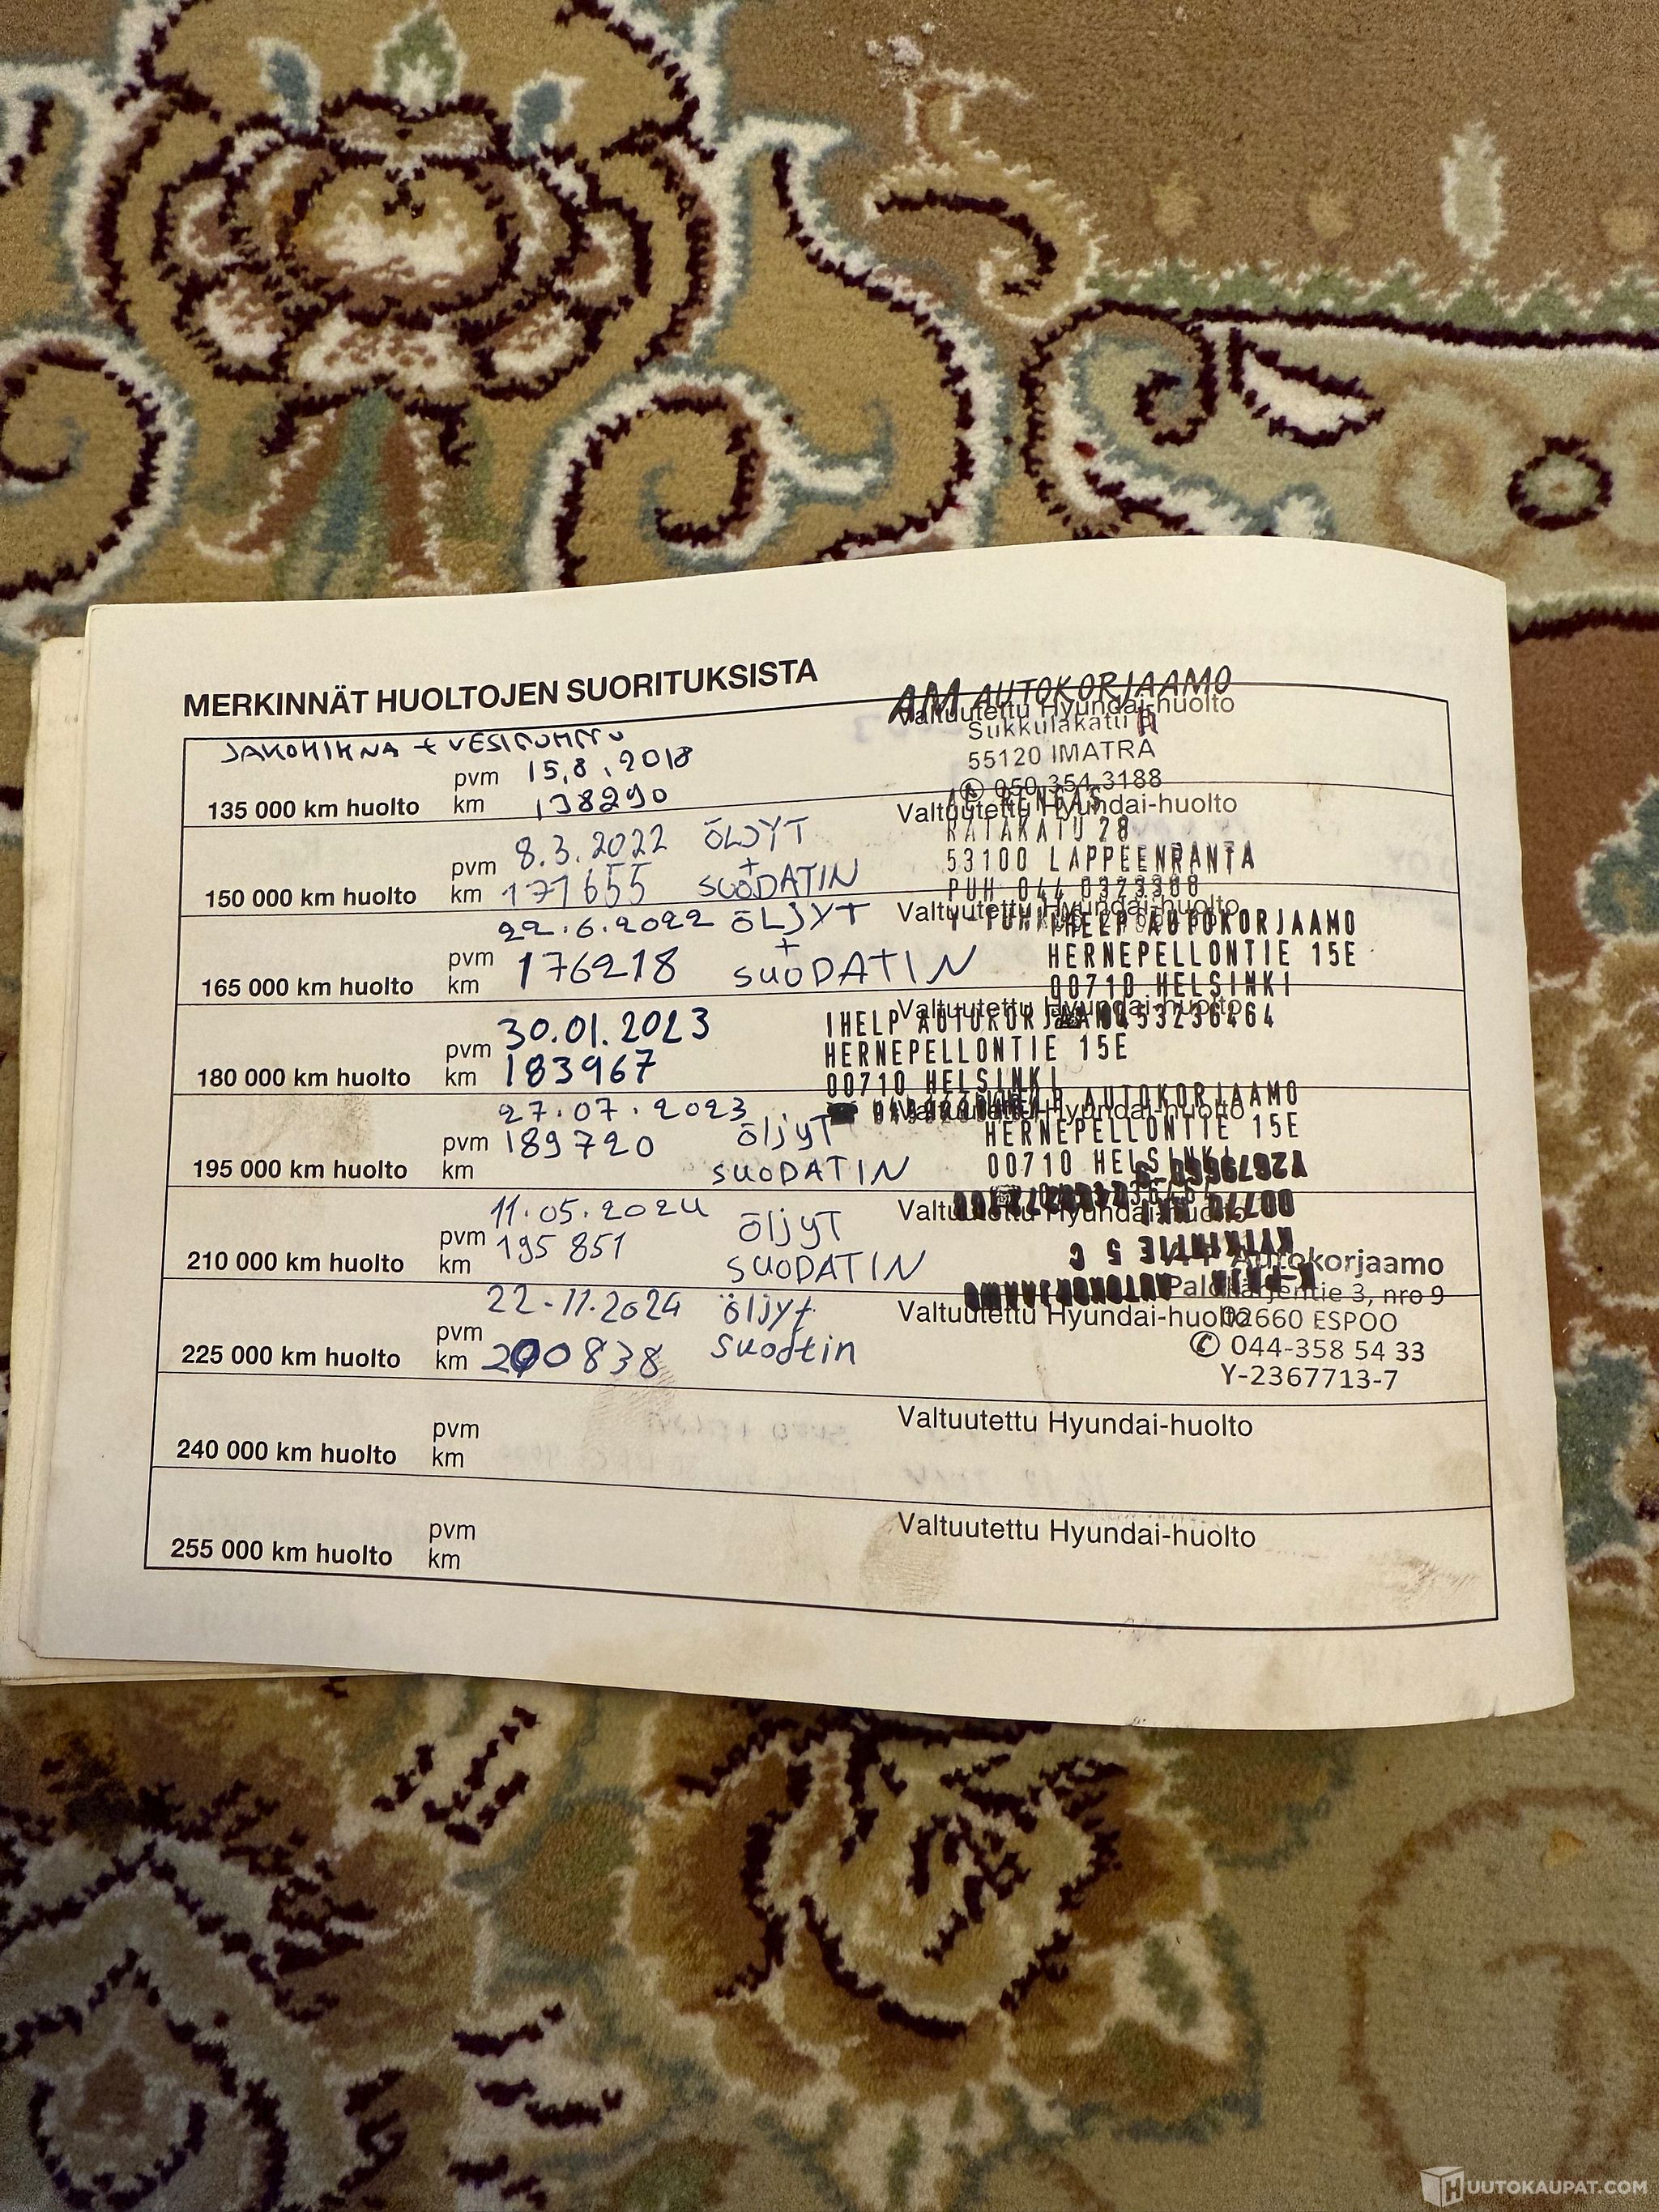 MERKINNÄT HUOLTOJEN SUORITUKSISTA
AM AUTOKORJAAMO
Valtuutettu Hyundai-huolto
Sukkulakatu
55120 IMATRA
✆ 050 354 3188
JAKOHIHNA + VESIPUMPPU
pvm 15.8.2018
135 000 km huolto km 138290
Valtuutettu Hyundai-huolto
RENGAS
RATAKATU 28
53100 LAPPEENRANTA
PUH 044 0323300
pvm 8.3.2022 ÖLJYT
+
150 000 km huolto km 171655 SUODATIN
Valtuutettu Hyundai-huolto
IHELP AUTOKORJAAMO
HERNEPELLONTIE 15E
00710 HELSINKI
22.6.2022 ÖLJYT
+
pvm
165 000 km huolto km 176218 SUODATIN
Valtuutettu Hyundai-huolto
0453236464
IHELP AUTOKORJAAMO
HERNEPELLONTIE 15E
00710 HELSINKI
pvm 30.01.2023
180 000 km huolto km 183967
Valtuutettu Hyundai-huolto
AUTOKORJAAMO
HERNEPELLONTIE 15E
00710 HELSINKI
27.07.2023 öljyT
pvm 189720
195 000 km huolto km SUODATIN
Valtuutettu Hyundai-huolto
KYTKINTIE 5 C
AUTOKORJAAMO
11.05.2024 öljyT
pvm 195 851
210 000 km huolto km SUODATIN
Autokorjaamo
Palokärjentie 3, nro 9
Valtuutettu Hyundai-huolto
02660 ESPOO
✆ 044-358 54 33
Y-2367713-7
22.11.2024 öljyt
pvm
225 000 km huolto km 200838 Suodtin
Valtuutettu Hyundai-huolto
pvm
240 000 km huolto km
Valtuutettu Hyundai-huolto
pvm
255 000 km huolto km
HUUTOKAUPAT.COM